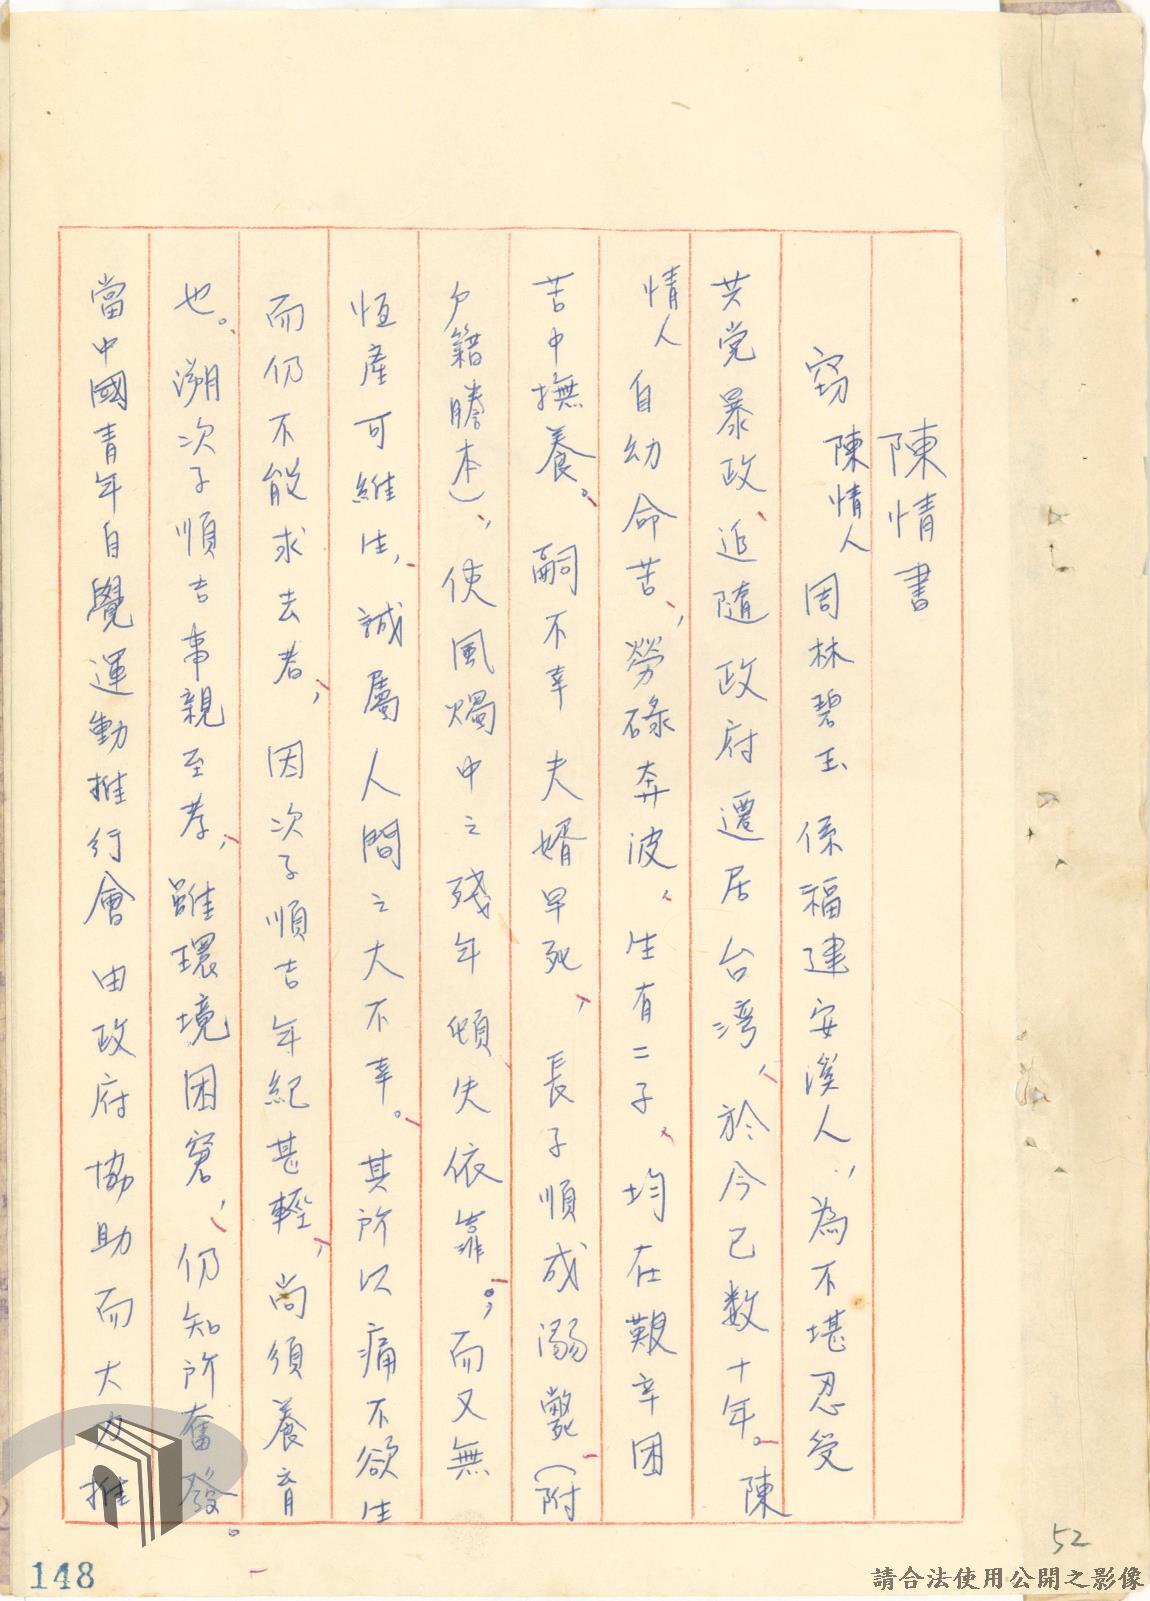 陳情書
窃陳情人周林碧玉係福建安溪人，為不堪忍受
共党暴政、追隨政府遷居台湾，於今已数十年。陳
情人自幼命苦，勞碌奔波，生有二子，均在艱辛困
苦中撫養。嗣不幸夫婿早死，長子順成溺斃（附
戶籍謄本），使風燭中之殘年頓失依靠；而又無
恒產可維生，誠屬人間之大不幸。其所以痛不欲生
而仍不能求去者，因次子順吉年紀甚輕，尚須養育
也。溯次子順吉事親至孝，雖環境困窘，仍知所奮發。
當中國青年自覺運動推行會由政府協助而大力推
148
52
請合法使用公開之影像